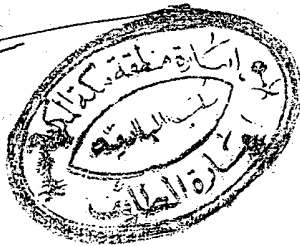 إمارة منطقة مكة المكرمة
إمارة الطائف